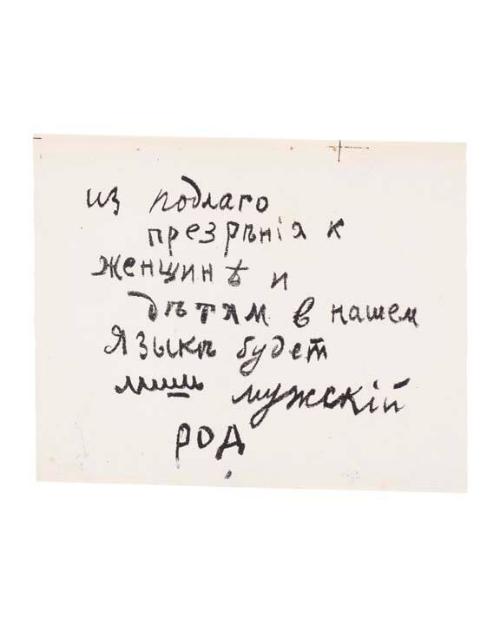 из подлаго
презрѣнія к
женщинѣ и
дѣтям в нашем
языкѣ будет
лишь мужскій
род